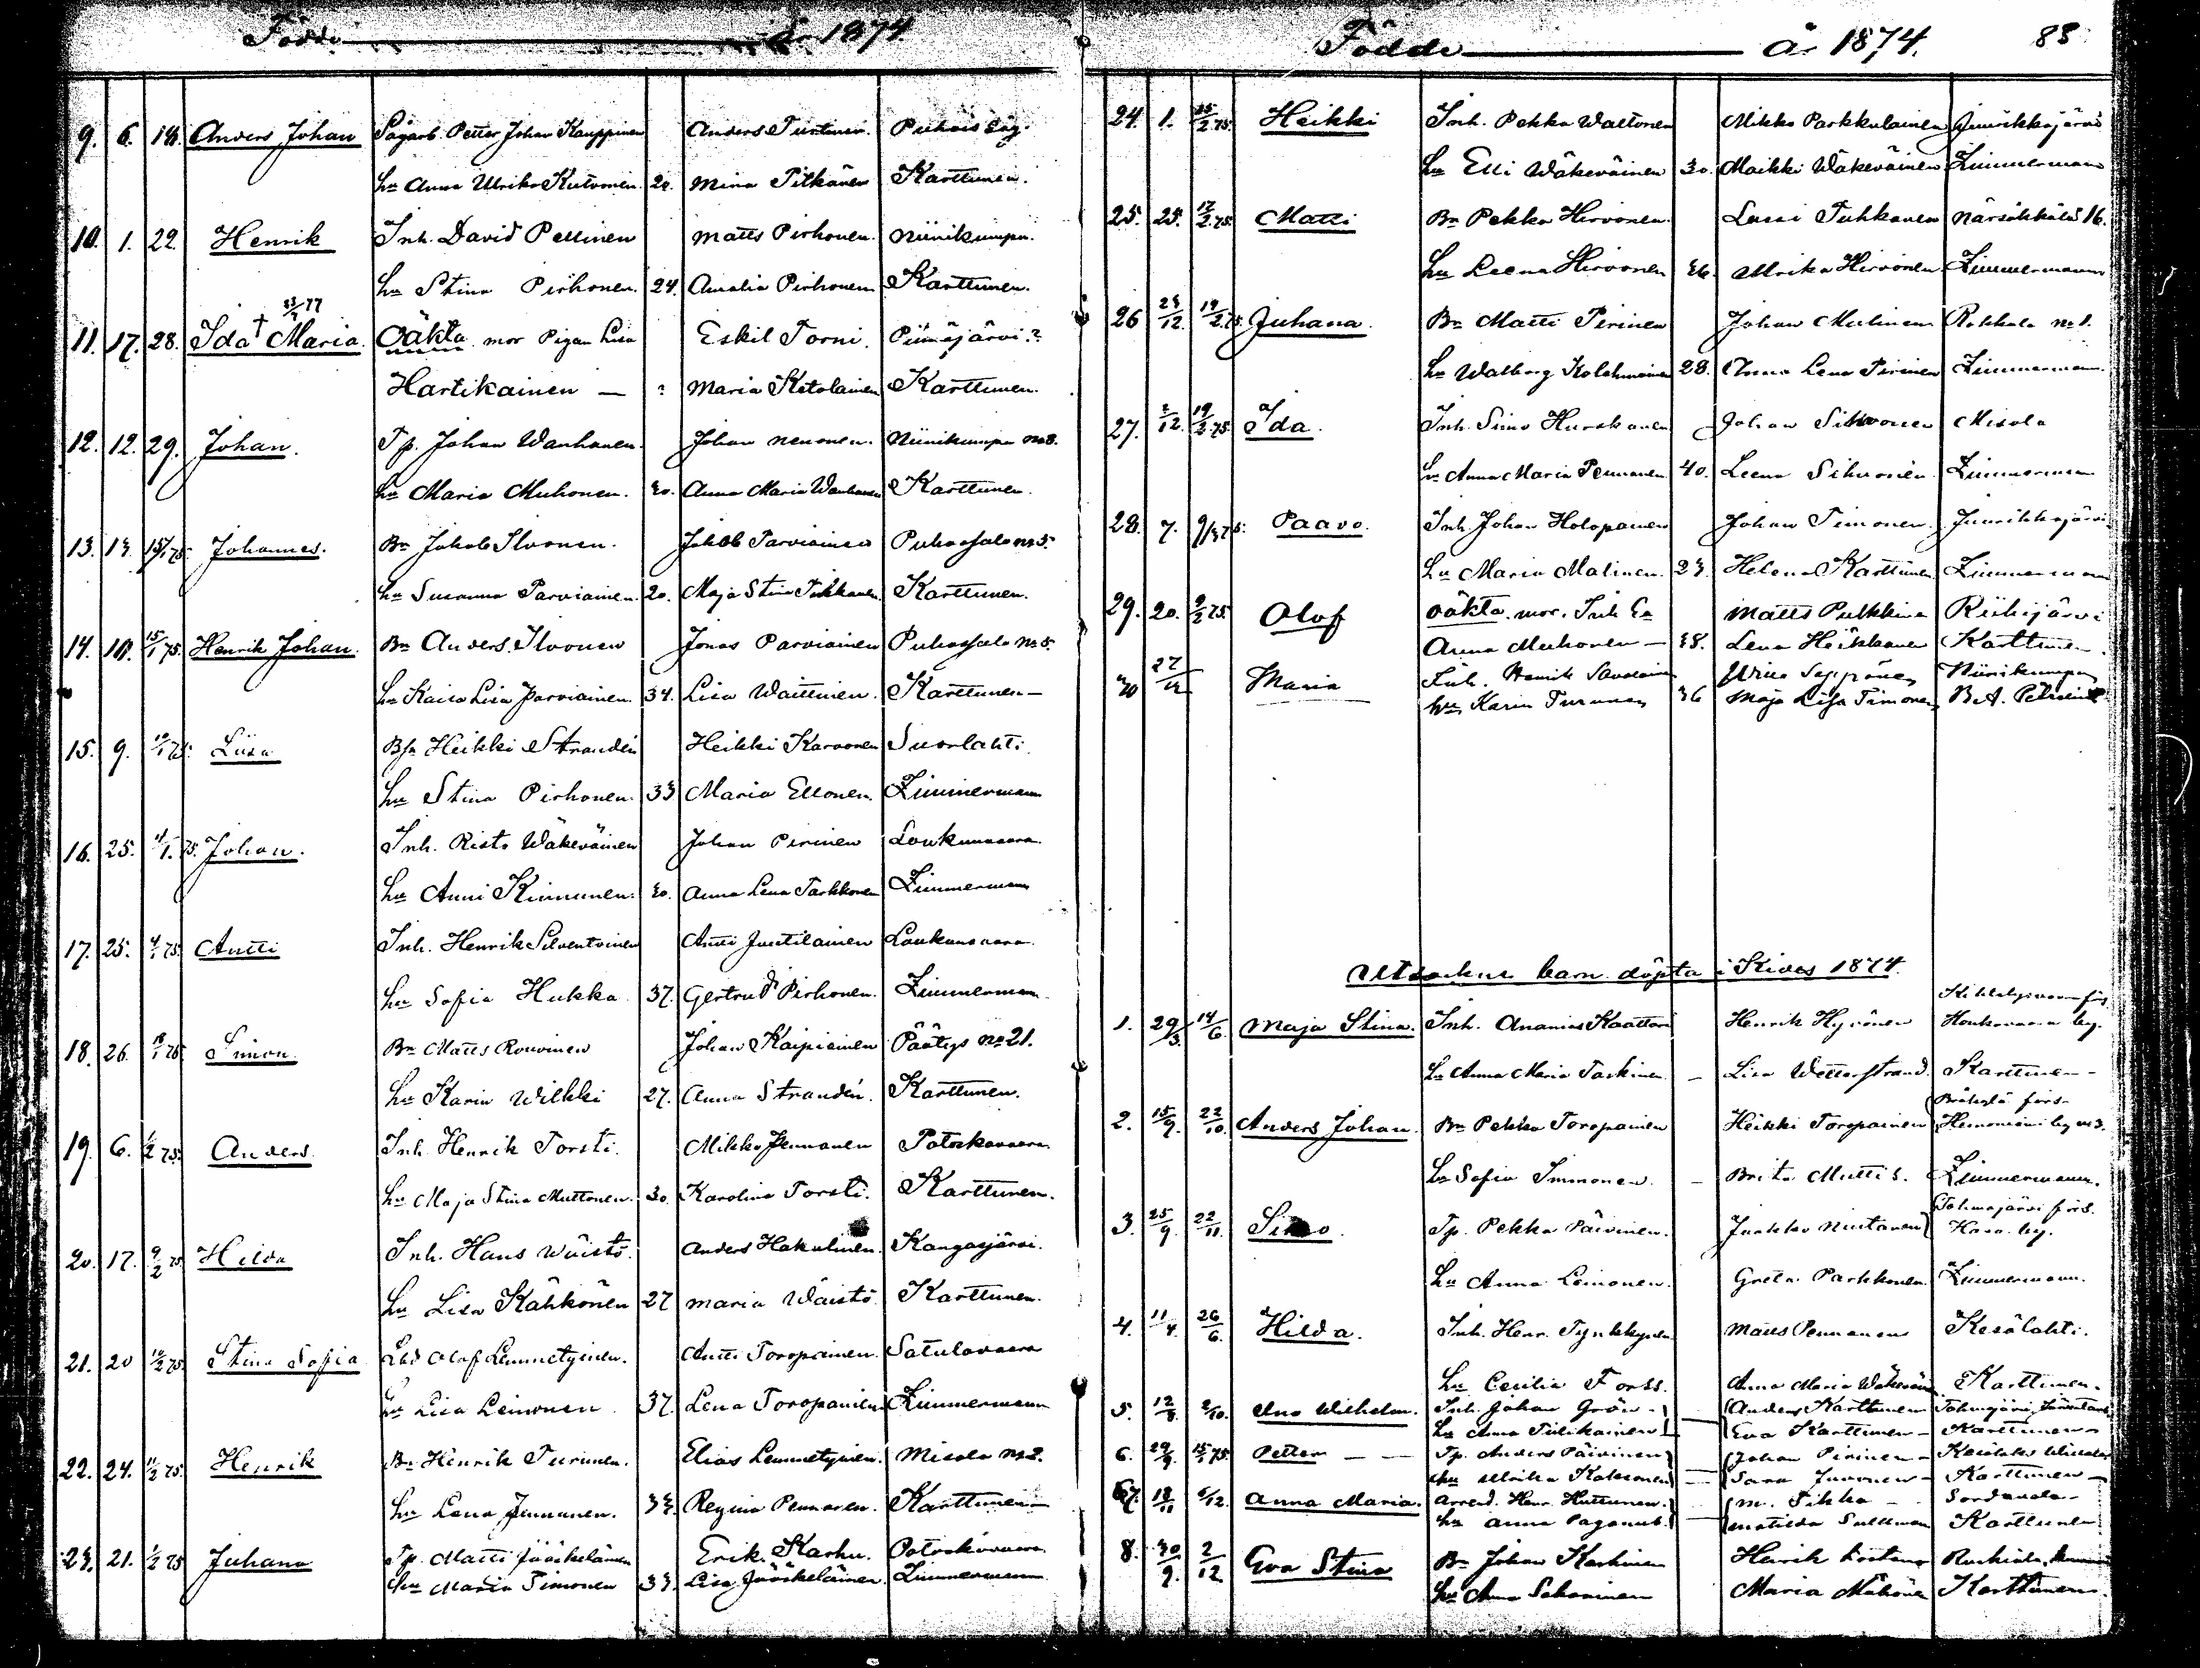 Födde År 1874
9. 6. 18. Anders Johan Sågarb. Petter Johan Kauppinen Anders Turtinen Puhois såg.
hu Anna Ulrika Kutvonen 22. Mina Pitkänen Karttunen.
10. 1. 22. Henrik Inh. David Pellinen Matts Pirhonen. Niinikumpu.
hu Stina Pirhonen. 24. Amalia Pirhonen Karttunen.
11. 17. 28. Ida † Maria. Oäkta mor Pigan Lisa Eskil Torni. Piimäjärvi?
Hartikainen — ? Maria Ketolainen Karttunen.
12. 12. 29. Johan. Tp. Johan Wanhanen. Johan Nenonen. Niinikumpu no 8.
hu Maria Muhonen. 30. Anna Maria Wanhanen Karttunen.
13. 13. 15/1 75. Johannes. Bn Jakob Ilvonen. Jakob Parviainen Puhossalo no 5.
hu Susanna Parviainen. 20. Maja Stina Tuhkanen Karttunen.
14. 10. 15/1 75. Henrik Johan. Bn Anders Ilvonen Jonas Parviainen Puhossalo No 5.
hu Kaisa Lisa Parviainen. 34. Lisa Waittinen. Karttunen —
15. 9. Liisa Heikki Strandén Heikki Karvonen Suorlahti.
hu Stina Pirhonen. 33 Maria Ellonen. Zimmermann
16. 25. 75. Johan. Inh. Risto Wäkeväinen Johan Pirinen Loukunvaara.
hu Anni Kinnunen. 30. Anna Lena Tarkkonen Zimmermann
17. 25. 75. Antti Inh. Henrik Silventoinen Antti Juutilainen Loukunvaara.
hu Sofia Hukka 37. Gertrud Pirhonen. Zimmermann.
18. 26. Simon. Bn Matts Rouvinen Johan Kaipiainen Päätys no 21.
hu Karin Wilkki 27. Anna Strandén. Karttunen.
19. 6. 75. Anders. Inh. Henrik Torsti. Mikko Pennanen Potoskavaara
hu Maja Stina Muttonen. 30. Karolina Torsti. Karttunen.
20. 17. 9/2 75 Hilda Inh. Hans Wäistö. Anders Hakulinen. Kangasjärvi.
hu Lisa Kähkönen 27 Maria Wäistö. Karttunen.
21. 20 75 Stina Sofia Olof Lemmetyinen. Antti Toropainen. Satulavaara
hu Lisa Leinonen 37. Lena Toropainen Zimmermann
22. 24. 11/2 75. Henrik Bn Henrik Turunen. Elias Lemmetyinen. Misola no 2.
hu Lena Pennanen. 33. Regina Pennanen. Karttunen —
23. 21. 75 Juhana Tp. Matti Jääskeläinen Erik Karhu. Potoskavaara
hu Maria Timonen 33. Lisa Jääskeläinen. Zimmermann
Födde År 1874. 88
24. 1. 75. Heikki Inh. Pekka Waltonen Mikko Parkkulainen Juurikkajärvi
hu Elli Wäkeväinen 30. Maikki Wäkeväinen Zimmermann
25. 25. 75. Matti Bn Pekka Hirvonen. Lassi Tuhkanen Närsäkkälä 16.
hu Leena Hirvonen 36. Ulrika Hirvonen Zimmermann
26 23/12. 75. Juhana. Bn Matti Pirinen Johan Mulinen Rokkala no 1.
hu Walborg Kolehmainen 28. Anna Lena Pirinen Zimmermann.
27. 2/12. 75. Ida. Inh. Simo Hurskanen Johan Sihvonen Misola
hu Anna Maria Pennanen 40. Leena Sihvonen. Zimmermann
28. 7. Paavo. Inh. Johan Holopainen Johan Timonen. Juurikkajärvi
hu Maria Malinen. 23. Helena Karttunen Zimmermann
29. 20. 75. Olof Oäkta. mor. Inh. Matts Pulkkinen Riihijärvi
Anna Muhonen — 38. Lena Heikkanen Karttunen.
30 27/12 Maria Inh. Henrik Savolainen Seppänen Niinikumpu
hu Karin Turunen 36 Maja Lisa Timonen B.A.
Utsockne barn döpta i Kides 1874.
1. 29/3. 14/6. Maja Stina. Inh. Ananias Kaattari Henrik Hyvönen Honkavaara by.
hu Anna Maria Taskinen. — Lisa Wetterstrand. Karttunen —
2. 15/9. 22/10. Anders Johan. Bn Pekka Toropainen Heikki Toropainen Bräkylä förs. Hemonieni by no 3.
hu Sofia Immonen. — Brita Mutti s. Zimmermann.
3. 25/9. 22/11. Simo. Tp. Pekka Päivinen. Jaakko Mustonen Tohmajärvi förs. Kasa by.
hu Anna Leinonen. Greta Parkkonen. Zimmermann.
4. 11/4. 26/6. Hilda. Inh. Henr. Tynkkynen Matts Pennanen Kesälahti.
hu Cecilia Forss. Anna Maria Wäkeväinen Karttunen.
5. 12/8. Uno Wilhelm. Inh. Johan Grön. Anders Karttunen Tohmajärvi
hu Anna Tiilikainen Eva Karttunen — Karttunen —
6. 29/9. 75 Petter — — Tp. Anders Päivinen Johan Pirinen —
hu Ulrika Kakkonen — Sara Juvonen — Karttunen —
7. 18/11 6/12. Anna Maria. Arrend. Henr. Huttunen. M. Sikka — Sordavala
hu Anna Paganus. Matilda Sallman Karttunen
8. 30/9. 2/12 Eva Stina Bn Johan Karhinen Henrik Ruskiala
hu Anna Sahaninen Maria Karttunen.